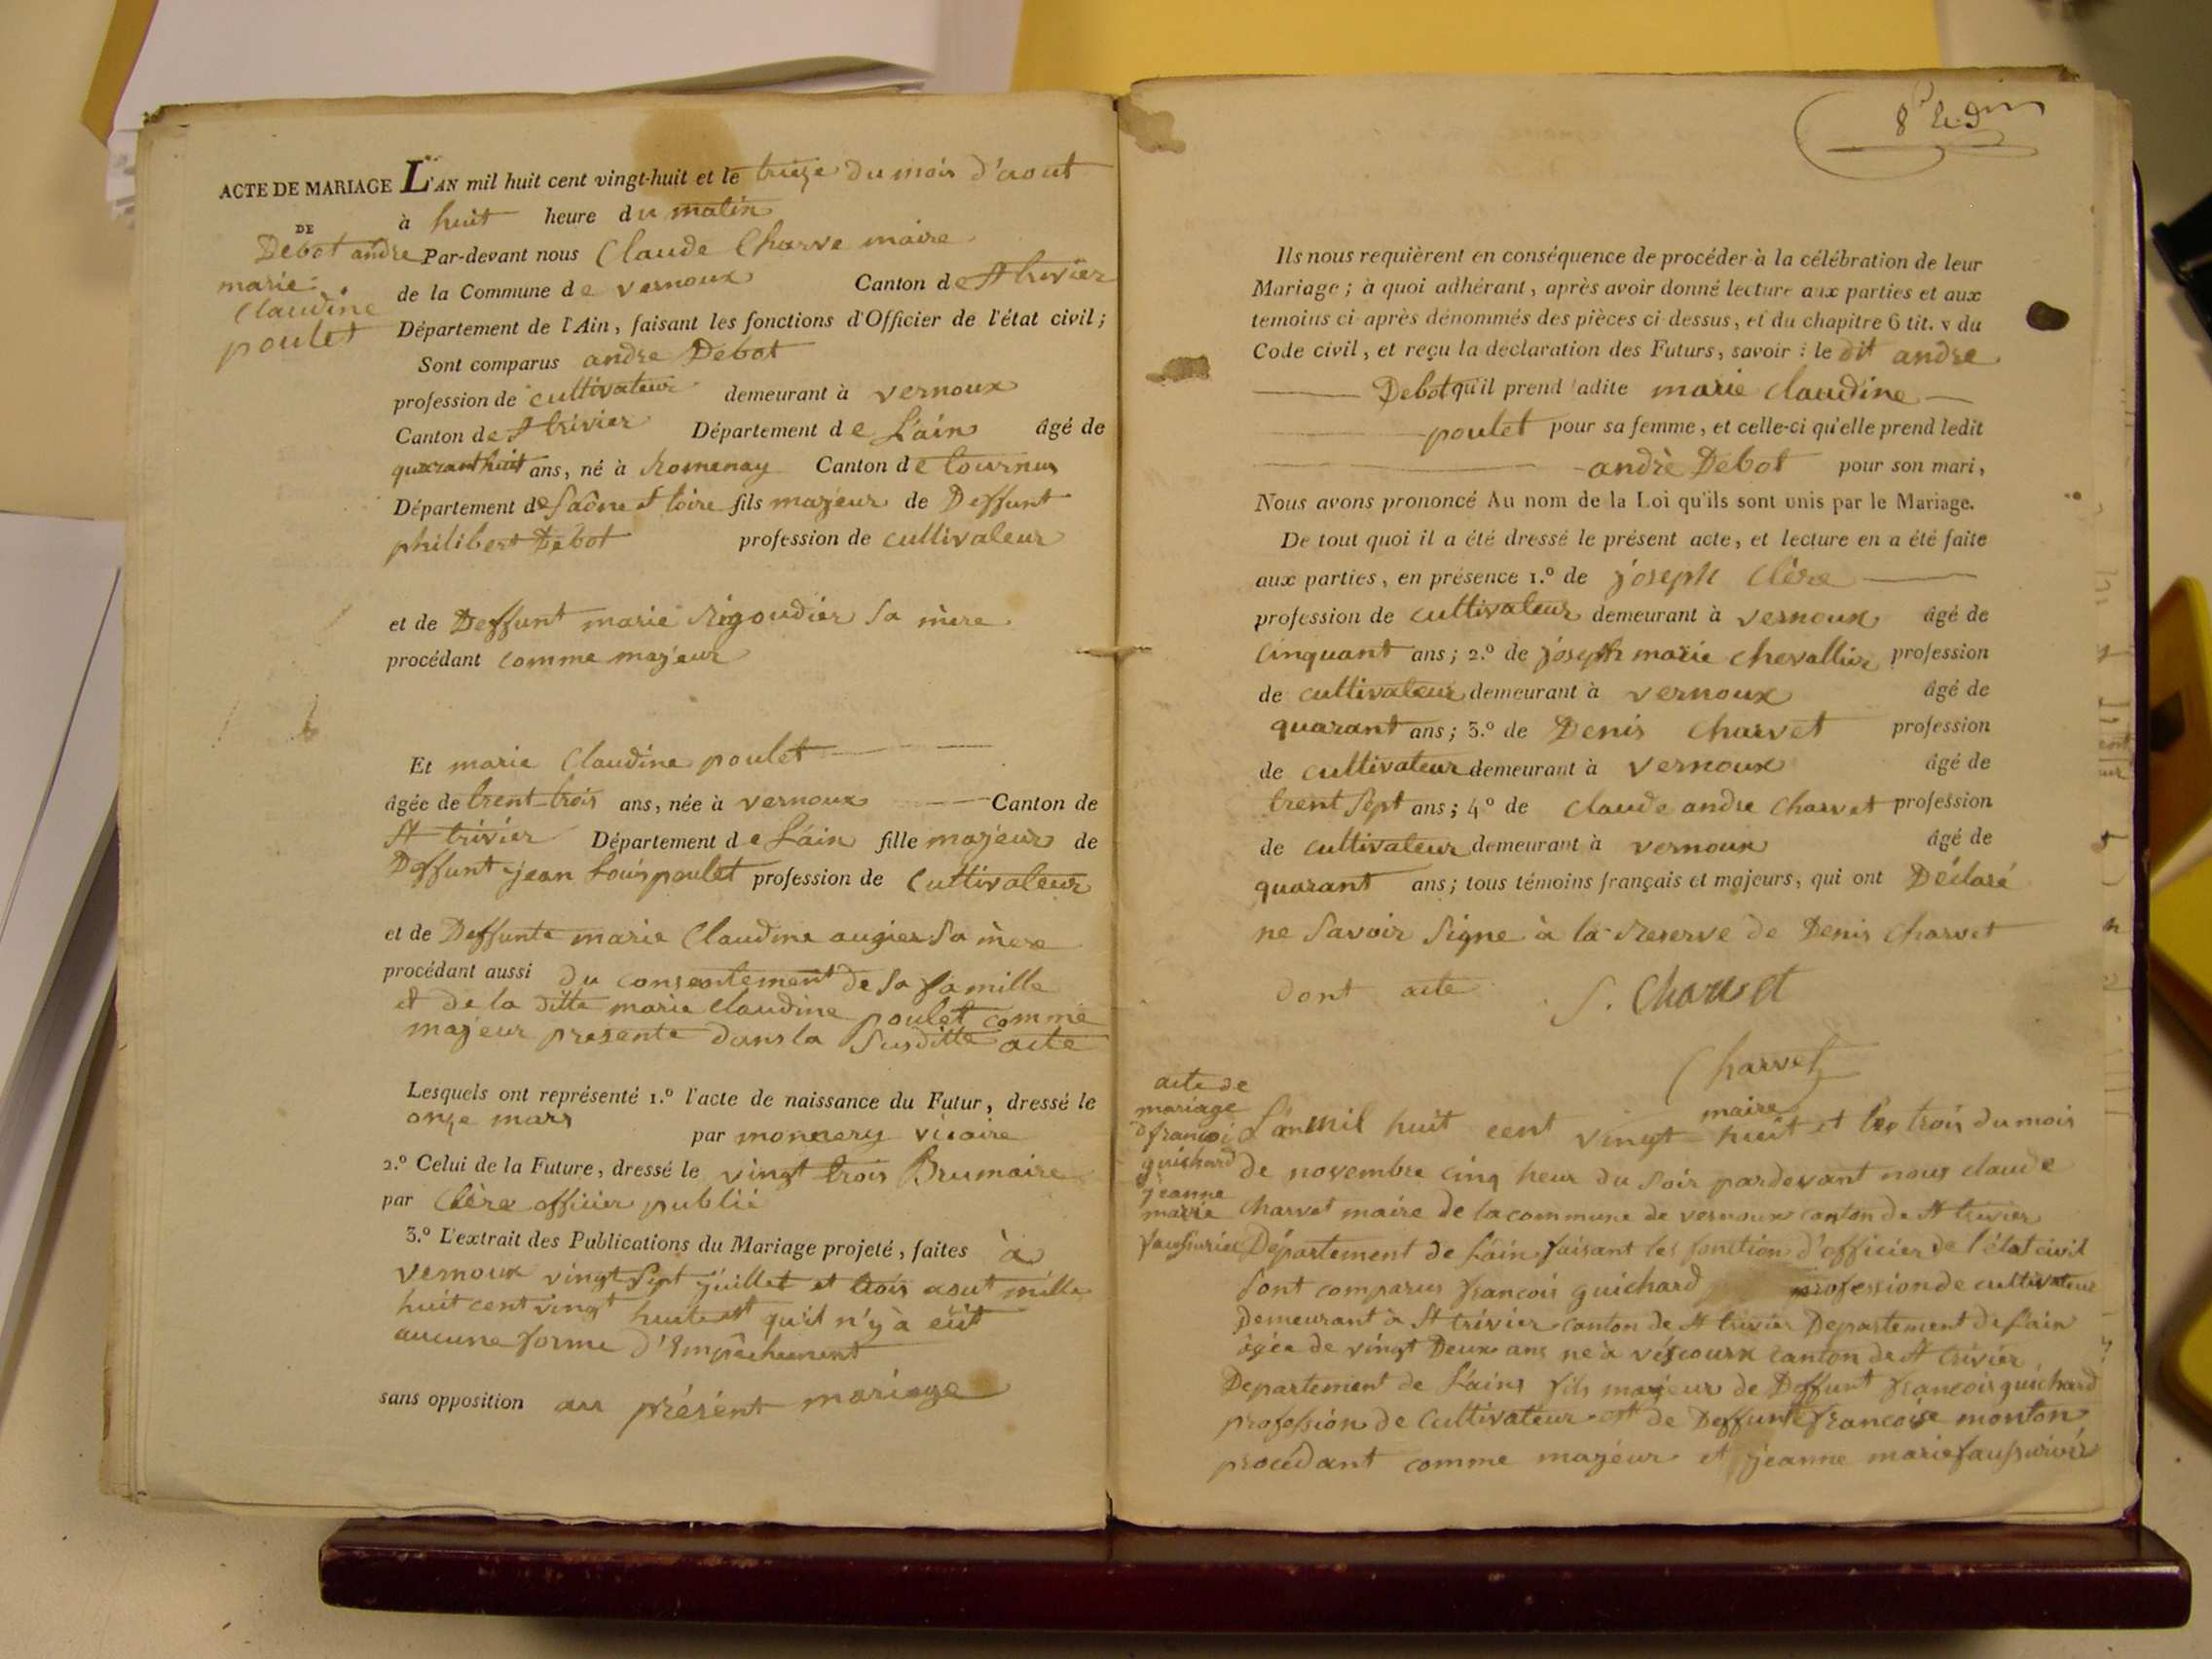 ACTE DE MARIAGE L'AN mil huit cent vingt-huit et le treize du mois d'aout
DE
Debot andre
marie
Claudine
poulet
à huit heure du matin
Par-devant nous Claude Charve maire
de la Commune de vernoux Canton de St trivier
Département de l'Ain, faisant les fonctions d'Officier de l'état civil;
Sont comparus andre Debot
profession de cultivateur demeurant à vernoux
Canton de St trivier Département de L'ain âgé de
quarant huit ans, né à Romenay Canton de tournus
Département de Saône et loire fils majeur de Deffunt
philibert Debot profession de cultivateur
et de Deffunt marie Rigoudier sa mere
procédant comme majeur
Et marie Claudine poulet
âgée de trent-trois ans, née à vernoux Canton de
St trivier Département de L'ain fille majeur de
Deffunt jean Louis poulet profession de Cultivateur
et de Deffunte marie Claudine augier sa mere
procédant aussi du consentement de sa famille
et de la ditte marie Claudine poulet comme
majeur presente dans la susditte acte
Lesquels ont représenté 1.º l'acte de naissance du Futur, dressé le
onze mars par monnery vicaire
2.º Celui de la Future, dressé le vingt trois Brumaire
par Clère officier public
3.º L'extrait des Publications du Mariage projeté, faites à
vernoux vingt sept juillet et trois aout mille
huit cent vingt huit et qu'il n'y à eüt
aucune forme d'Empêchement
sans opposition au présent mariage
Ils nous requièrent en conséquence de procéder à la célébration de leur
Mariage; à quoi adhérant, après avoir donné lecture aux parties et aux
temoins ci-après dénommés des pièces ci-dessus, et du chapitre 6 tit. v du
Code civil, et reçu la déclaration des Futurs, savoir: le dit andre
Debot qu'il prend ladite marie claudine
poulet pour sa femme, et celle-ci qu'elle prend ledit
andrè Debot pour son mari,
Nous avons prononcé Au nom de la Loi qu'ils sont unis par le Mariage.
De tout quoi il a été dressé le présent acte, et lecture en a été faite
aux parties, en présence 1.º de joseph Clère
profession de cultivateur demeurant à vernoux âgé de
cinquant ans; 2.º de joseph marie chevallier profession
de cultivateur demeurant à vernoux âgé de
quarant ans; 3.º de Denis Charvet profession
de cultivateur demeurant à vernoux âgé de
trent sept ans; 4º de claude andre Charvet profession
de cultivateur demeurant à vernoux âgé de
quarant ans; tous témoins français et majeurs, qui ont Déclaré
ne savoir signe à la Reserve de Denis Charvet
dont acte S. Charvet
Charvet
maire
acte de
mariage
d francoi
guichard
jeanne
marie
L'an mil huit cent vingt-huit et les trois du mois
de novembre cinq heur du soir pardevant nous claude
charvet maire de la commune de vernoux canton de St trivier
Département de L'ain faisant les fonction d'officier de l'état civil
sont comparus francois guichard profession de cultivateur
Demeurant à St trivier canton de St trivier Departement de L'ain
âgée de vingt Deux ans né à véscourx canton de St trivier
Departement de L'ain fils majeur de Deffunt francois guichard
profession de Cultivateur et de Deffunte francoise monton
procédant comme majeur et jeanne marie